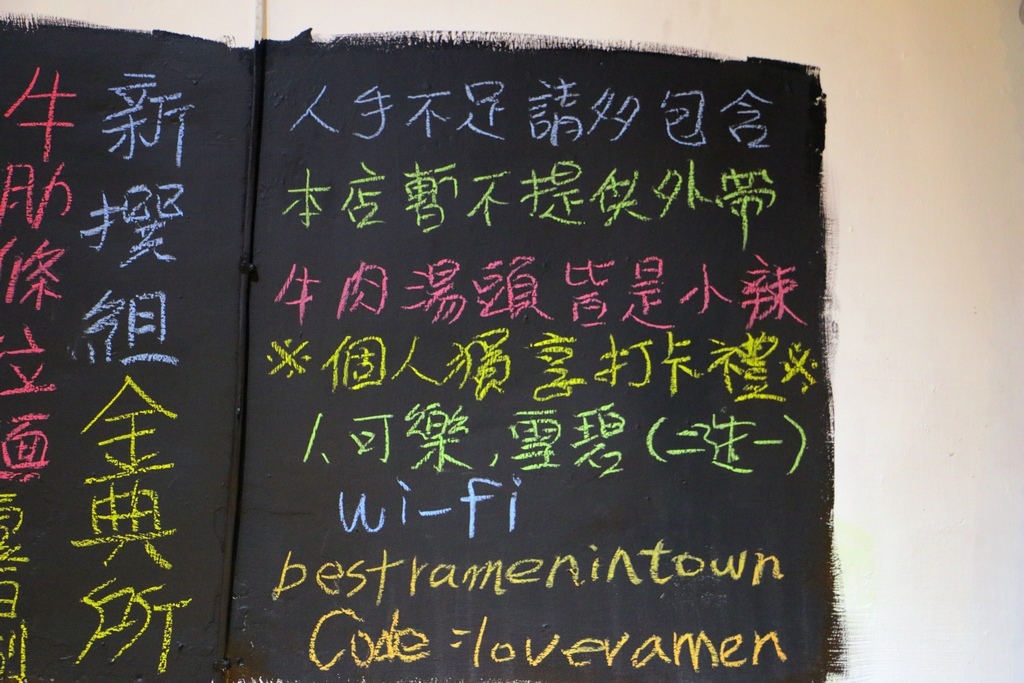 人手不足請多包含
本店暫不提供外帶
牛肉湯頭皆是小辣
※個人獨享打卡禮※
1、可樂,雪碧(二選一)
wi-fi
bestramenintown
Code=loveramen
新撰組金典所
牛肋條拉麵